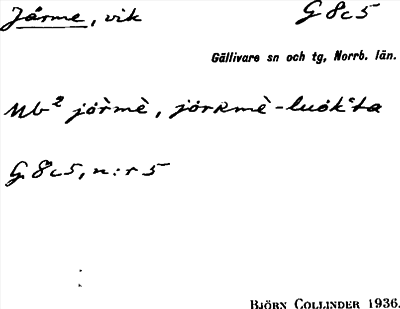 Jårme, vik G 8c5
Gällivare sn och tg, Norrb. län.
Nb² jȯ̀rmè, jȯrkmè-luȯkʿta
G 8c5, n:r 5
BJÖRN COLLINDER 1936.